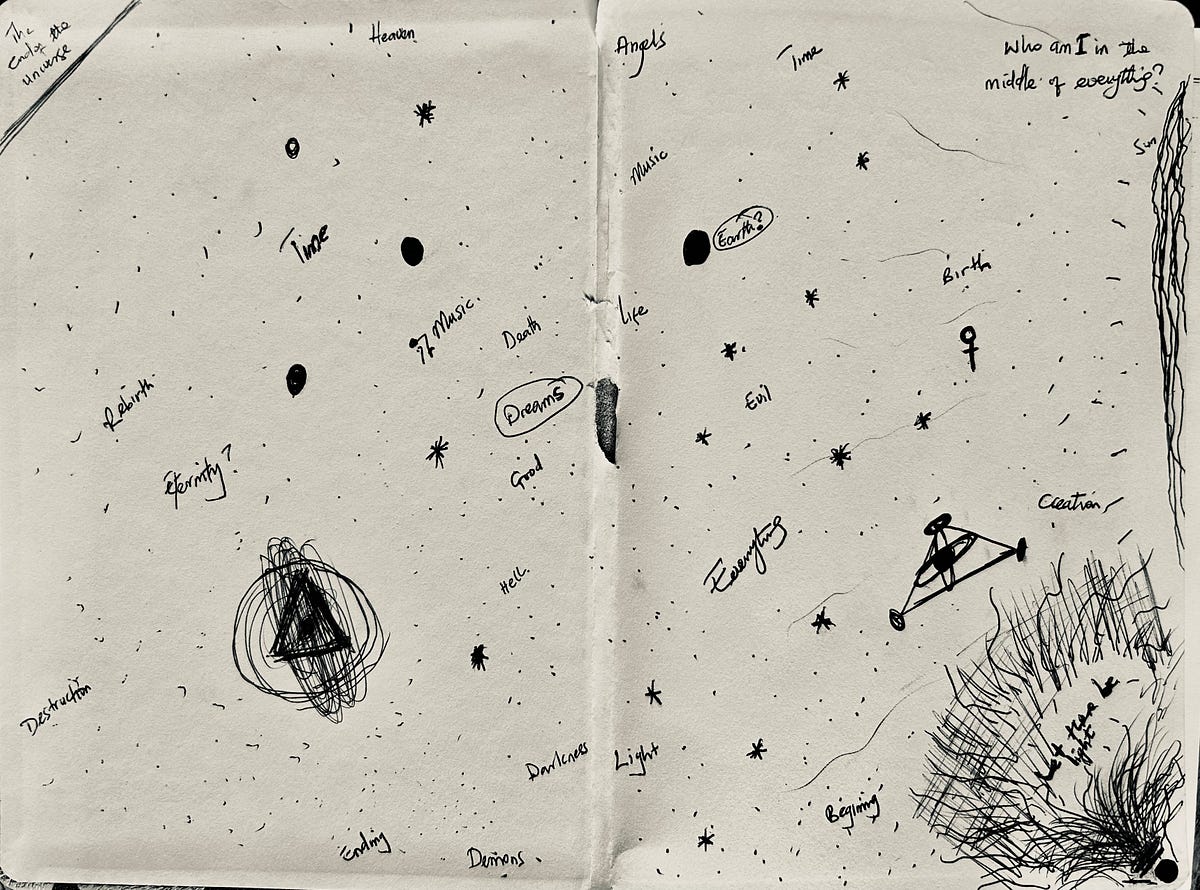 The
end of the
universe
Heaven
Time
Music.
Death
Rebirth
Dreams
Eternity?
Good
Hell.
Destruction
Darkness
Ending
Demons.
Angels
Time
Who am I in the
middle of everything?
Sun
Music
Earth?
Birth
Life
Evil
Creation
Everything
Let there be
light
Light
Begining